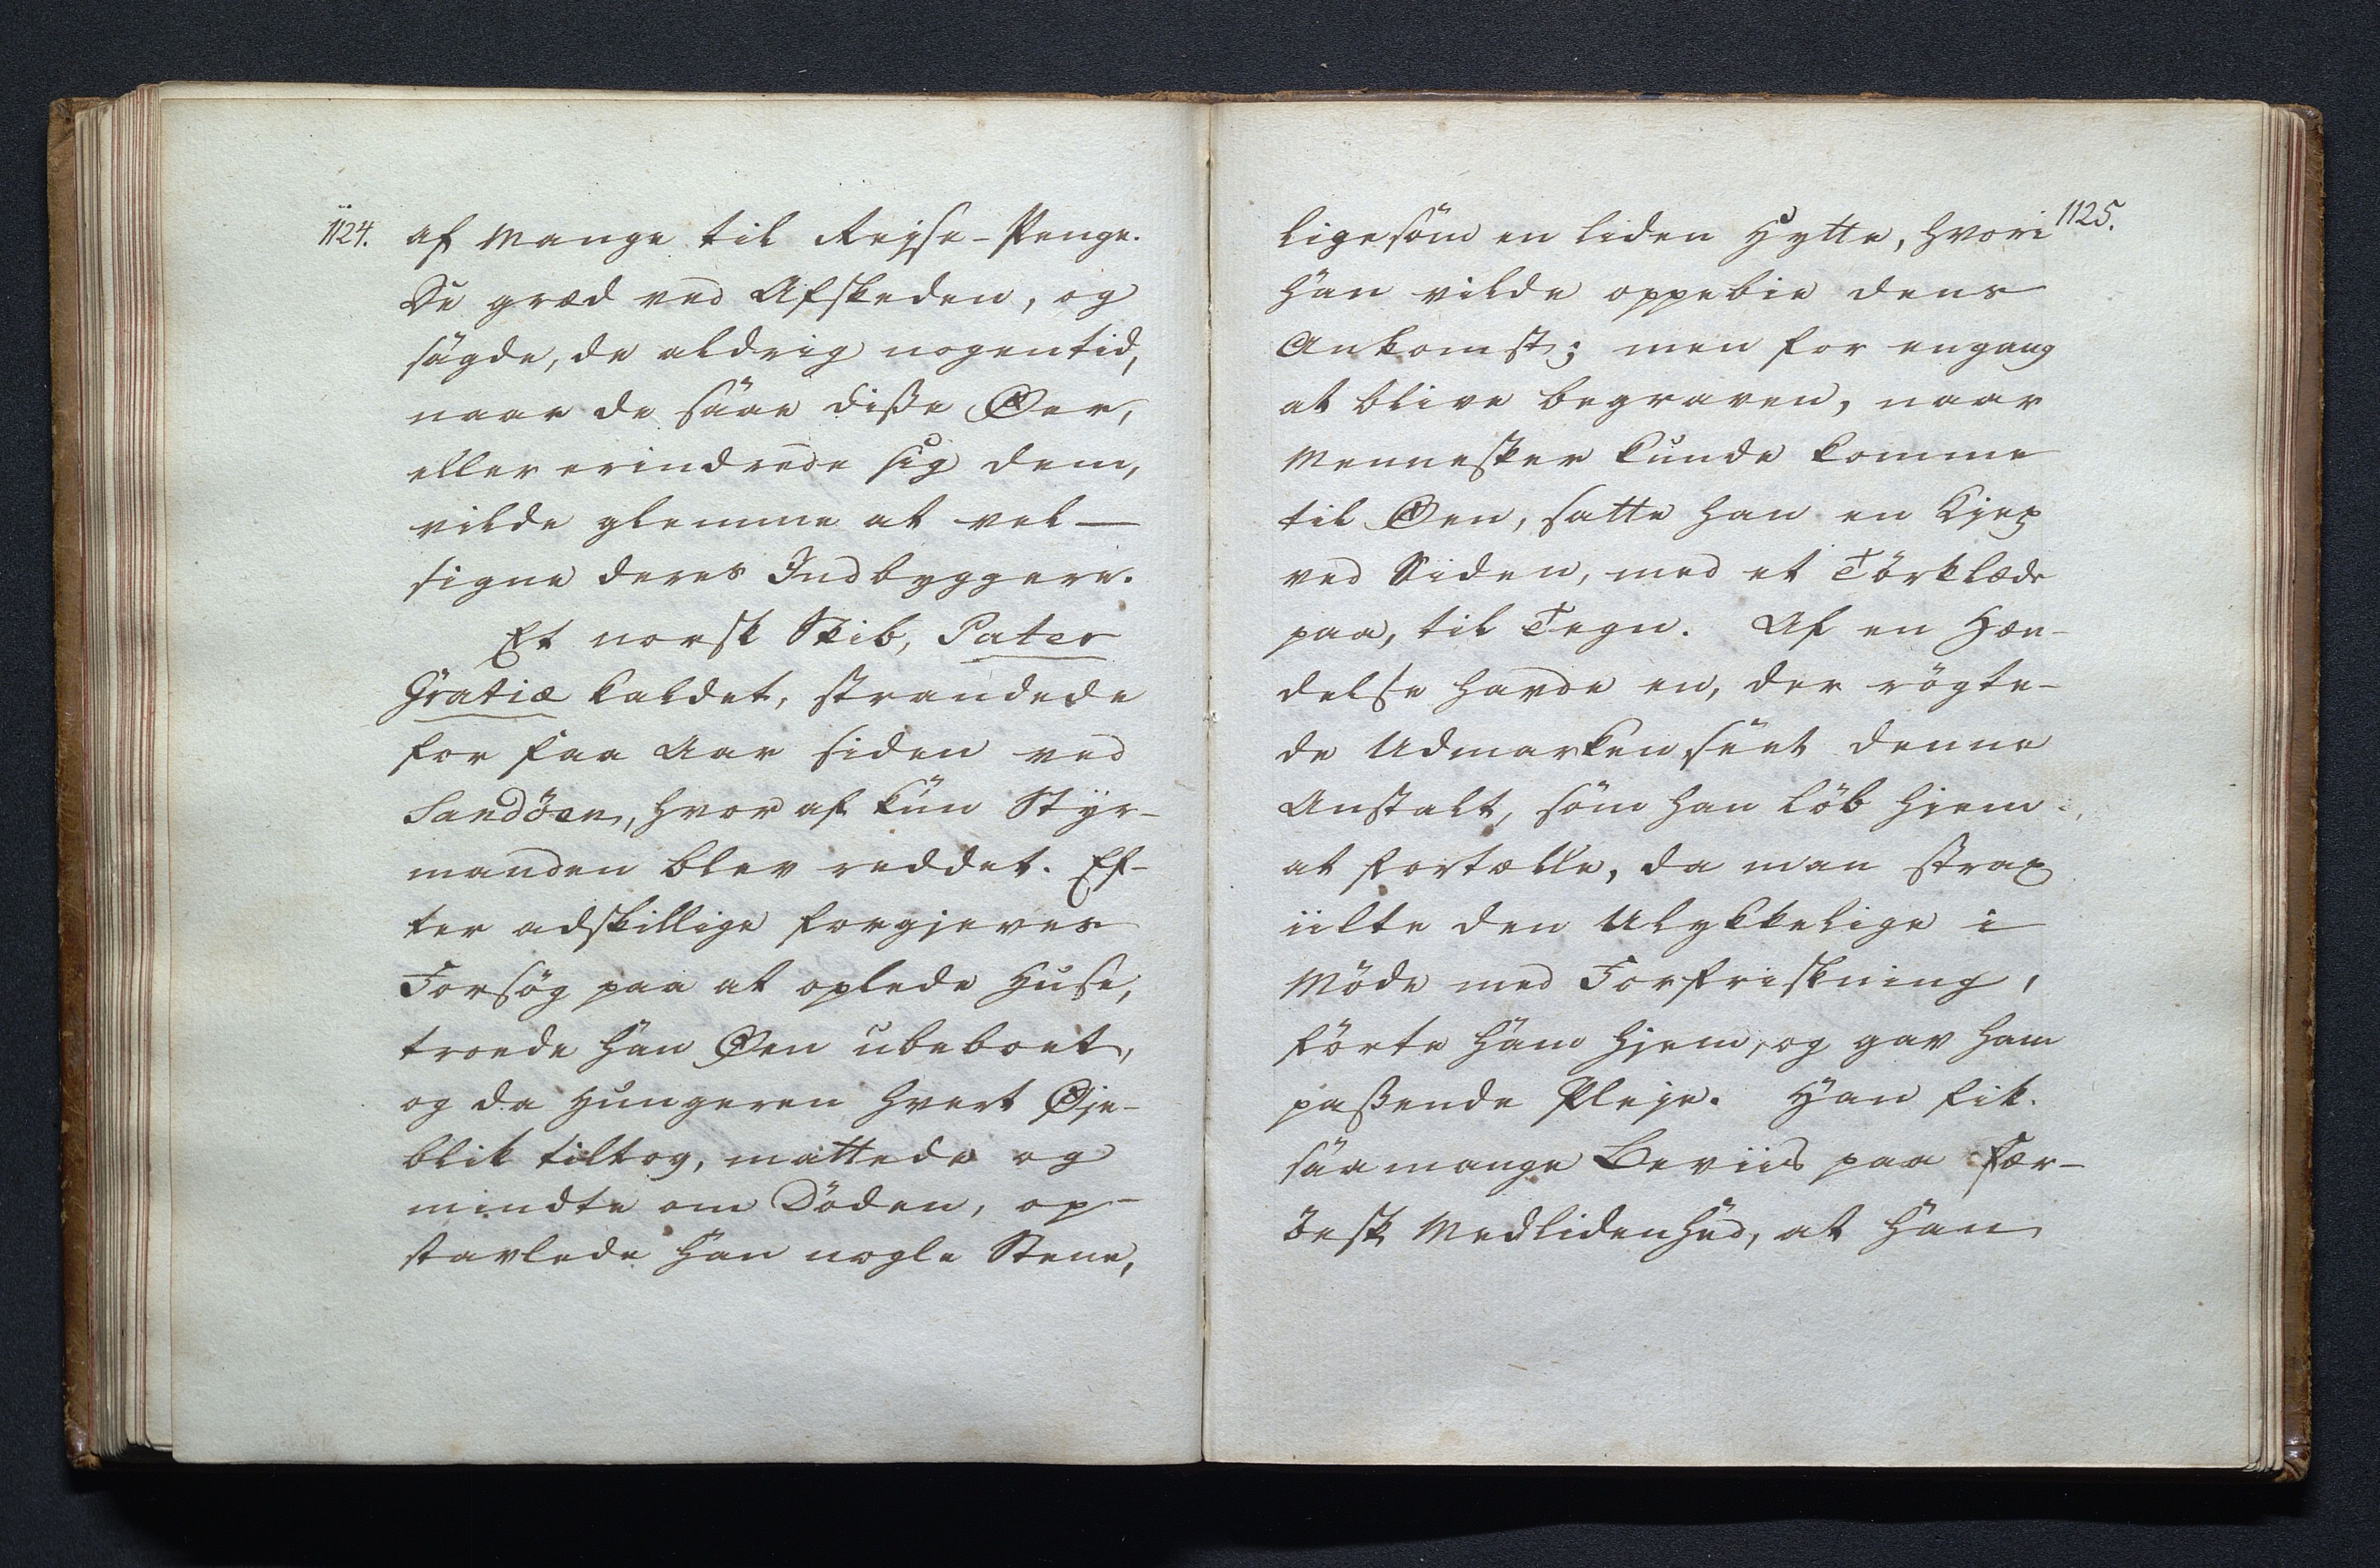 1124.
af Mange til Rejse-Penge.
De græd ved Afskeden, og
sagde, de aldrig nogentid,
naar de saae disse Øer,
eller erindrede sig dem,
vilde glemme at vel-
signe deres Indbyggere.
Et norsk Skib, Pater
Gratiæ kaldet, strandede
for faa Aar siden ved
Sandöen, hvoraf kun Styr-
manden blev reddet. Ef-
ter adskillige forgjeves
Forsög paa at oplede Huse,
troede han Øen ubeboet,
og da Hungeren hvert Øje-
blik tiltog, mattede og
mindte om Döden, op-
stavlede han nogle Stene,
1125.
ligesom en liden Hytte, hvori
han vilde oppebie dens
Ankomst; men for engang
at blive begraven, naar
Mennesker kunde komme
til Øen, satte han en Kjep
ved Siden, med et Törklæde
paa, til Tegn. Af en Hæn-
delse havde en, der rögte-
de Udmarken seet denne
Anstalt, som han löb hjem
at fortælle, da man strax
iilte den Ulykkelige i
Möde med Forfriskning,
förte ham hjem, og gav ham
passende Pleje. Han fik
saamange Beviis paa Fær-
öesk Medlidenhed, at han